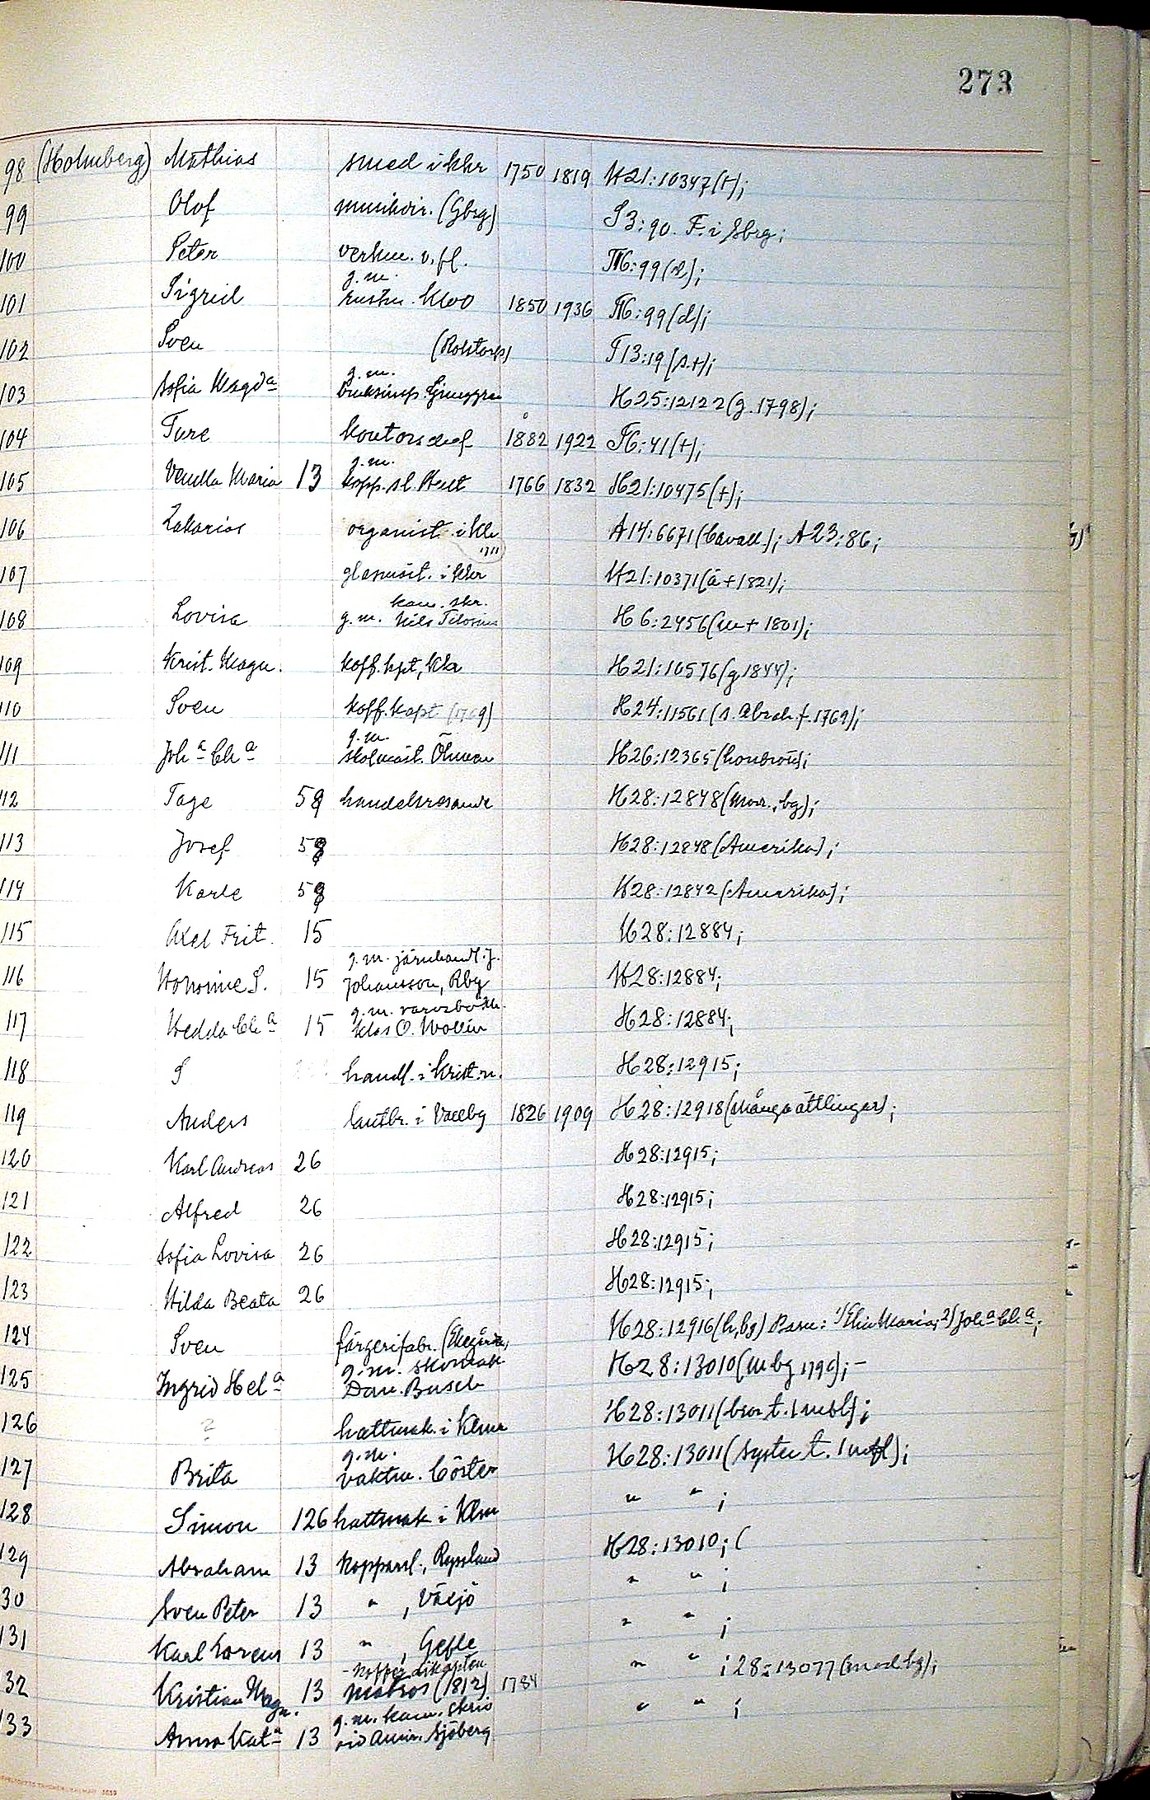 273
98 (Holmberg) Mathias smed i khr 1750 1819 H21:10347(+);
99 Olof musikdir. (Gbrg) S3:90. F. i Gbrg;
100 Peter verkm. v. fl. T16:99(d);
g.m.
101 Sigrid kloo 1850 1936 T16:99(d);
102 Sven (Rostorp) T13:19(s+);
g.m.
103 Sofia Magd<sup>a</sup> H25:12122(g.1798);
104 Ture kontorschef 1882 1922 T6:41(+);
g.m.
105 Vendla Maria 13 kopp.sl. 1766 1832 H21:10475(+);
106 Zakarias organist i klr A14:6671(Cavall.); A23:86;
1711
107 glasmäst. i khr H21:10371(ä+1821);
kam. skr.
108 Lovisa g.m. Nils H6:2456(m+1801);
109 Krist. Magn. koff.kpt, Kka H21:10576(g1844);
110 Sven koff.kapt. (1769) H24:11561(s. Abrah. f. 1762);
g.m.
111 Joh<sup>a</sup> Ch<sup>a</sup> skolmäst. Öhman H26:12365
112 Tage 59 handelsresande H28:12848(mor., bg);
113 Josef 59 H28:12848(Amerika);
114 Karle 59 H28:12842(Amerika);
115 Axel Frit. 15 H28:12884;
g.m. järnhandl. J.
116 S. 15 Johansson, Rby H28:12884;
g.m.
117 Hedda Ch<sup>a</sup> 15 Klas O. Wollin H28:12884;
118 S handl. i Krist.n. H28:12915;
119 Anders lantbr. i Vallby 1826 1909 H28:12918(många ättlingar);
120 Karl Andreas 26 H28:12915;
121 Alfred 26 H28:12915;
122 Sofia Lovisa 26 H28:12915;
123 Hilda Beata 26 H28:12915;
124 Sven färgerifabr. H28:12916(h,bg) Barn: 1/Elin Maria; 2) Joh<sup>a</sup> Ch<sup>a</sup>;
g.m. skomak.
125 Ingrid Hel<sup>a</sup> Dan. Busch H28:13010(m bg 1790);-
126 ? hattmak. i Klmr H28:13011(bror t. 1 mbl);
g.m.
127 Brita vaktm. Cöster H28:13011(syster t. 1 mfl);
128 Simon 126 hattmak i Klmr " " ;
129 Abraham 13 kopparsl., Ryssland H28:13010; (
30 Sven Peter 13 " , Växjö " " ;
131 Karl Lorens 13 " , Gefle " " ;
- koffardikapten
32 Kristian Magn. 13 matros (1812) 1784 " " ; 28:13077(mod bg);
g.m. kam. skriv
133 Anna Kat<sup>a</sup> 13 vid Amir. Sjöberg " " ;